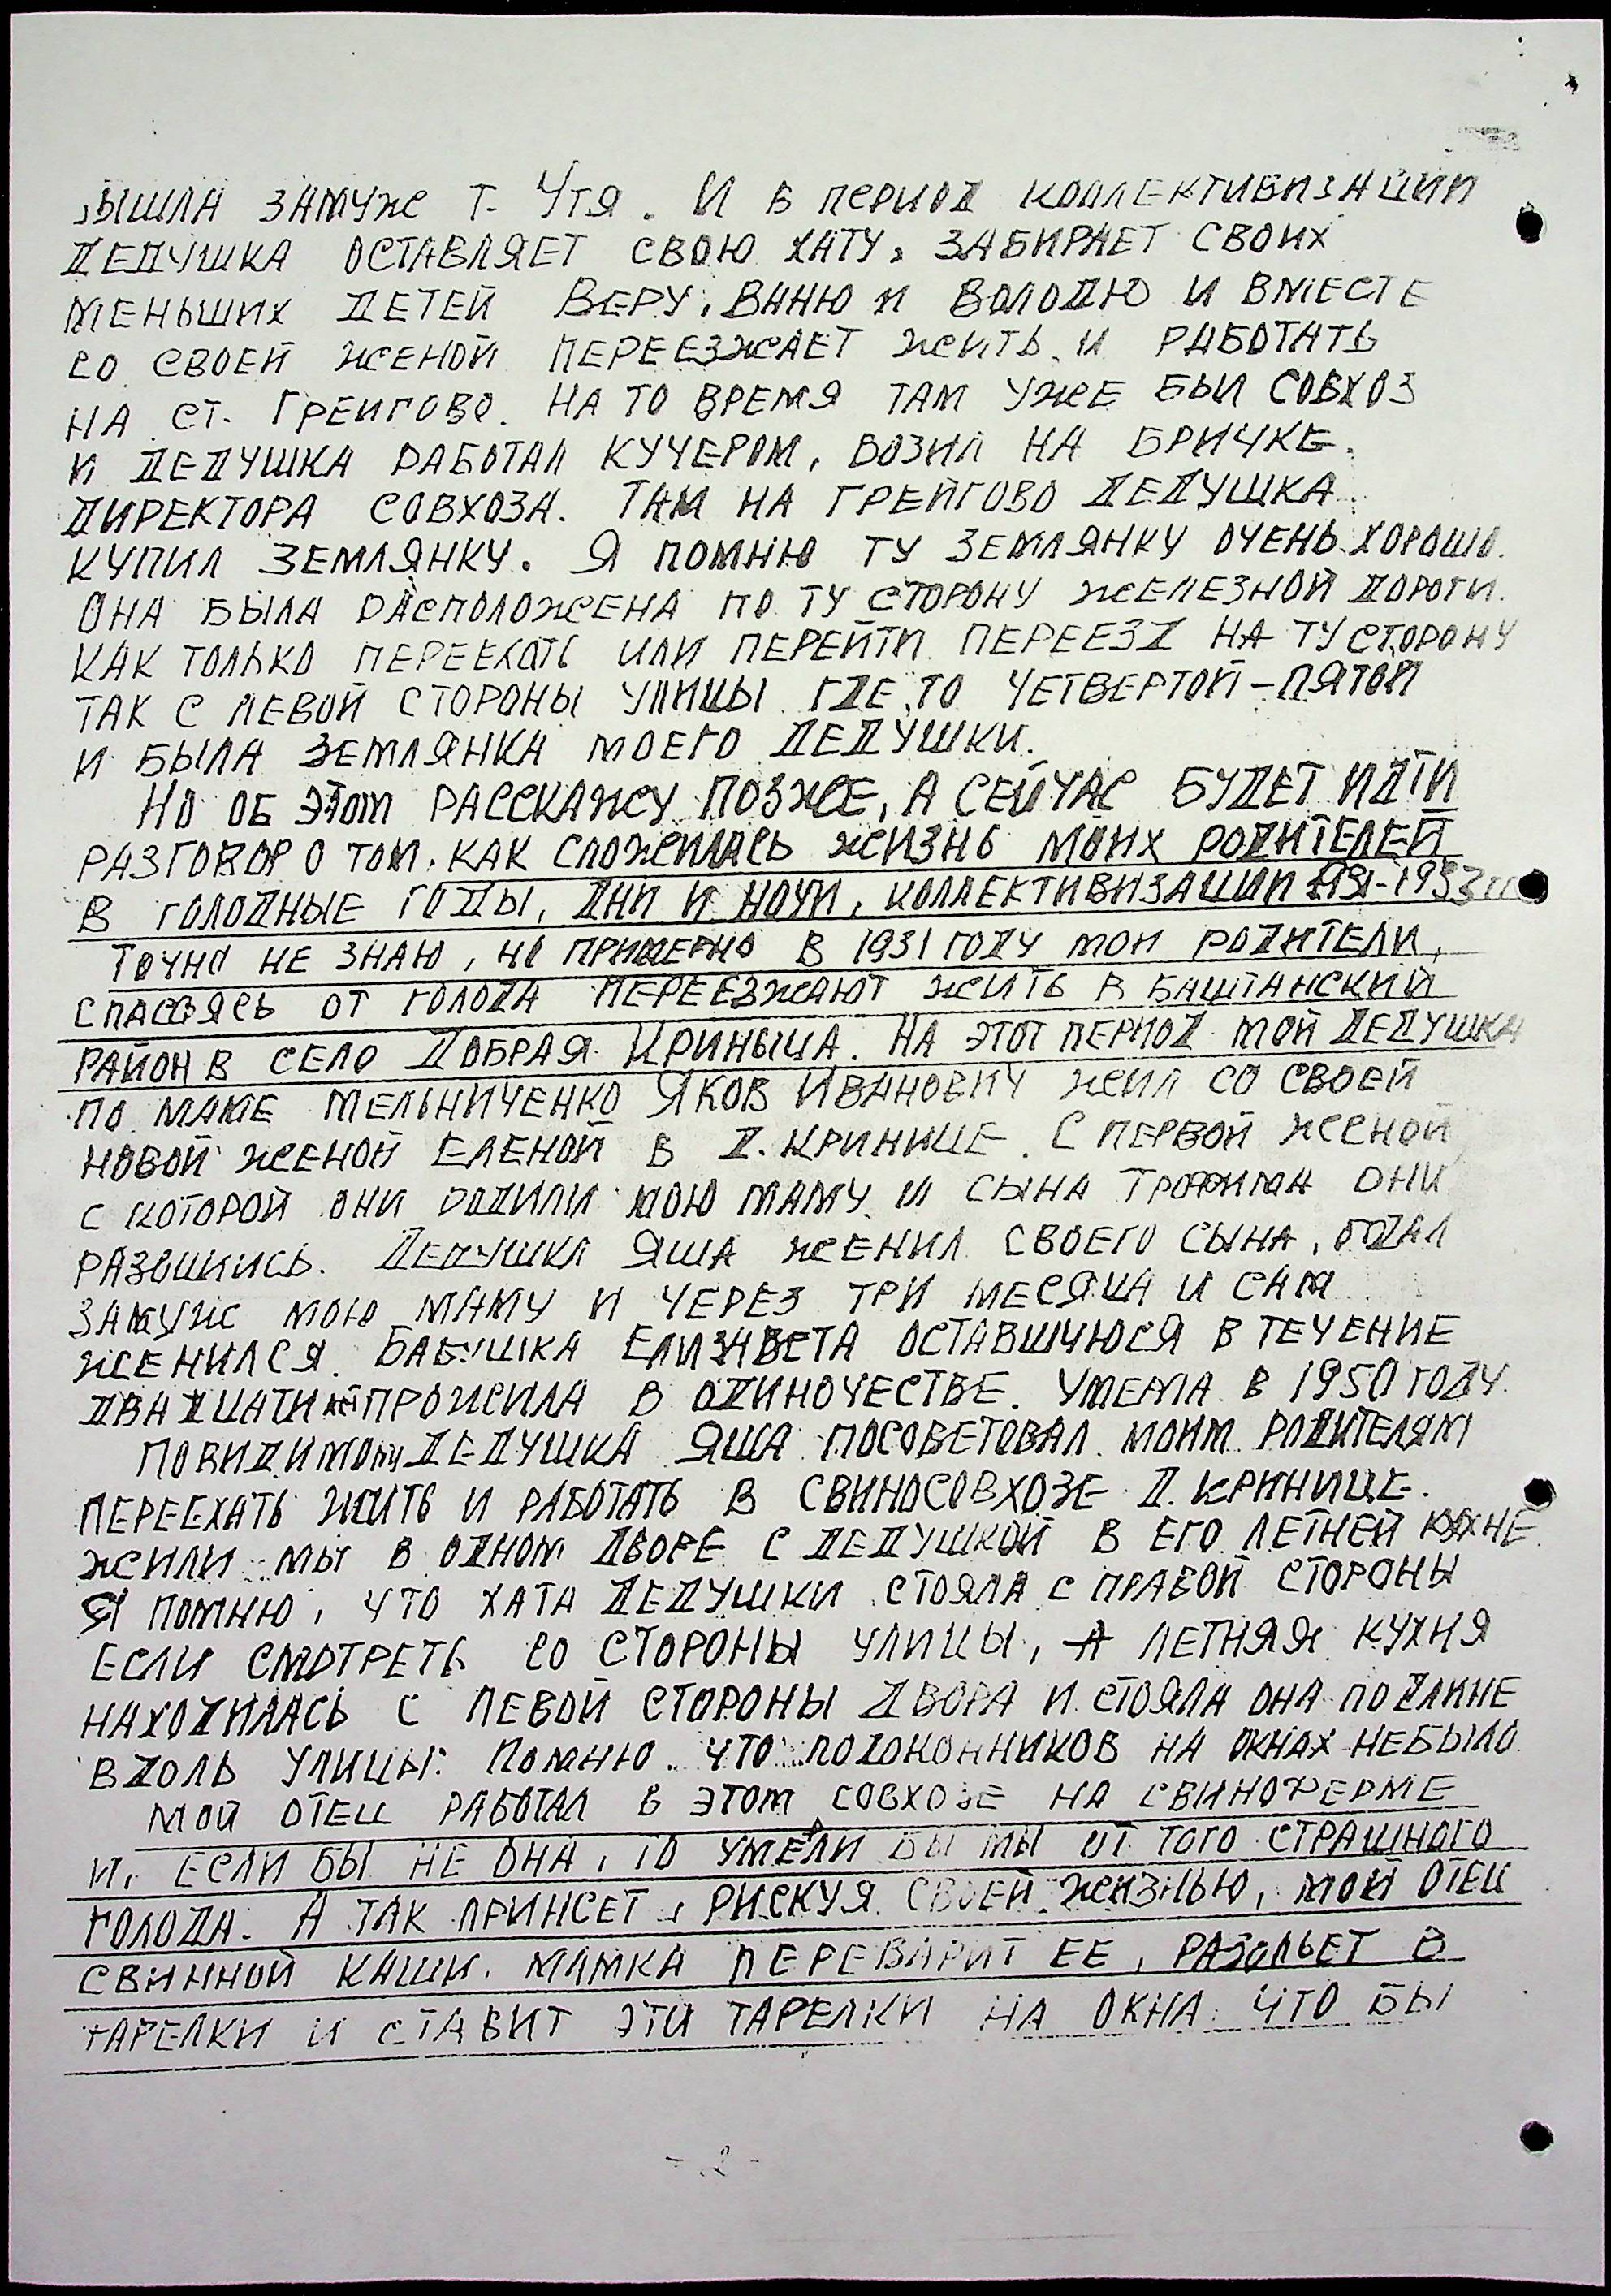 ВЫШЛА ЗАМУЖ Т. УТЯ. И В ПЕРИОД КОЛЛЕКТИВИЗАЦИИ
ДЕДУШКА ОСТАВЛЯЕТ СВОЮ ХАТУ, ЗАБИРАЕТ СВОИХ
МЕНЬШИХ ДЕТЕЙ ВЕРУ, ВАНЮ И ВОЛОДЮ И ВМЕСТЕ
СО СВОЕЙ ЖЕНОЙ ПЕРЕЕЗЖАЕТ ЖИТЬ И РАБОТАТЬ
НА СТ. ГРЕЙГОВО. НА ТО ВРЕМЯ ТАМ УЖЕ БЫЛ СОВХОЗ
И ДЕДУШКА РАБОТАЛ КУЧЕРОМ, ВОЗИЛ НА БРИЧКЕ
ДИРЕКТОРА СОВХОЗА. ТАМ НА ГРЕЙГОВО ДЕДУШКА
КУПИЛ ЗЕМЛЯНКУ. Я ПОМНЮ ТУ ЗЕМЛЯНКУ ОЧЕНЬ ХОРОШО.
ОНА БЫЛА РАСПОЛОЖЕНА ПО ТУ СТОРОНУ ЖЕЛЕЗНОЙ ДОРОГИ.
КАК ТОЛЬКО ПЕРЕЕХАТЬ ИЛИ ПЕРЕЙТИ ПЕРЕЕЗД НА ТУ СТОРОНУ
ТАК С ЛЕВОЙ СТОРОНЫ УЛИЦЫ ГДЕ ТО ЧЕТВЕРТОЙ-ПЯТОЙ
И БЫЛА ЗЕМЛЯНКА МОЕГО ДЕДУШКИ.
НО ОБ ЭТОМ РАССКАЖУ ПОЗЖЕ, А СЕЙЧАС БУДЕТ ИДТИ
РАЗГОВОР О ТОМ, КАК СЛОЖИЛАСЬ ЖИЗНЬ МОИХ РОДИТЕЛЕЙ
В ГОЛОДНЫЕ ГОДЫ, ДНИ И НОЧИ, КОЛЛЕКТИВИЗАЦИИ 1931-1933
ТОЧНО НЕ ЗНАЮ, НО ПРИМЕРНО В 1931 ГОДУ МОИ РОДИТЕЛИ,
СПАСАЯСЬ ОТ ГОЛОДА ПЕРЕЕЗЖАЮТ ЖИТЬ В БАШТАНСКИЙ
РАЙОН В СЕЛО ДОБРАЯ КРИНЫЦА. НА ЭТОТ ПЕРИОД МОЙ ДЕДУШКА
ПО МАМЕ МЕЛЬНИЧЕНКО ЯКОВ ИВАНОВИЧ ЖИЛ СО СВОЕЙ
НОВОЙ ЖЕНОЙ ЕЛЕНОЙ В Д. КРИНИЦЕ. С ПЕРВОЙ ЖЕНОЙ
С КОТОРОЙ ОНИ РОДИЛИ МОЮ МАМУ И СЫНА ТРОФИМА ОНИ
РАЗОШЛИСЬ. ДЕДУШКА ЯША ЖЕНИЛ СВОЕГО СЫНА, ОТДАЛ
ЗАМУЖ МОЮ МАМУ И ЧЕРЕЗ ТРИ МЕСЯЦА И САМ
ЖЕНИЛСЯ. БАБУШКА ЕЛИЗАВЕТА ОСТАВШУЮСЯ В ТЕЧЕНИЕ
ДВАДЦАТИ ПРОЖИЛА В ОДИНОЧЕСТВЕ. УМЕРЛА В 1950 ГОДУ.
ПОВИДИМОМУ ДЕДУШКА ЯША ПОСОВЕТОВАЛ МОИМ РОДИТЕЛЯМ
ПЕРЕЕХАТЬ ЖИТЬ И РАБОТАТЬ В СВИНОСОВХОЗЕ Д. КРИНИЦЕ.
ЖИЛИ МЫ В ОДНОМ ДВОРЕ С ДЕДУШКОЙ В ЕГО ЛЕТНЕЙ КУХНЕ.
Я ПОМНЮ, ЧТО ХАТА ДЕДУШКИ СТОЯЛА С ПРАВОЙ СТОРОНЫ
ЕСЛИ СМОТРЕТЬ СО СТОРОНЫ УЛИЦЫ, А ЛЕТНЯЯ КУХНЯ
НАХОДИЛАСЬ С ЛЕВОЙ СТОРОНЫ ДВОРА И СТОЯЛА ОНА ПО ДЛИНЕ
ВДОЛЬ УЛИЦЫ. ПОМНЮ ЧТО ПОДОКОННИКОВ НА ОКНАХ НЕБЫЛО.
МОЙ ОТЕЦ РАБОТАЛ В ЭТОМ СОВХОЗЕ НА СВИНОФЕРМЕ
И, ЕСЛИ БЫ НЕ ОНА, ТО УМЕРЛИ БЫ МЫ ОТ ТОГО СТРАШНОГО
ГОЛОДА. А ТАК ПРИНСЕТ, РИСКУЯ СВОЕЙ ЖИЗНЬЮ, МОЙ ОТЕЦ
СВИННОЙ КАШИ. МАМКА ПЕРЕВАРИТ ЕЕ, РАЗОЛЬЕТ В
ТАРЕЛКИ И СТАВИТ ЭТИ ТАРЕЛКИ НА ОКНА. ЧТО БЫ
- 2 -